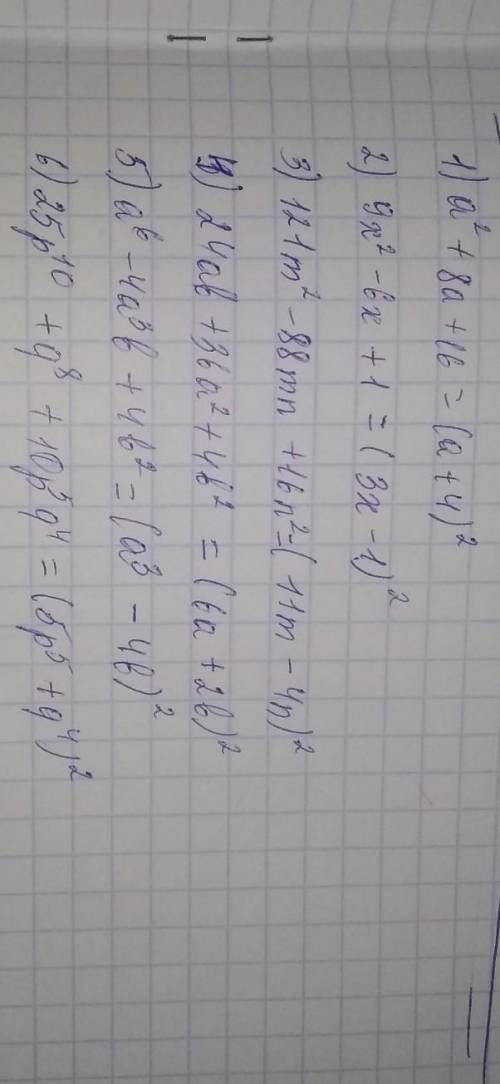 1) a² + 8a + 16 = (a + 4)²
2) 9x² - 6x + 1 = (3x - 1)²
3) 121m² - 88mn + 16n² = (11m - 4n)²
4) 24ab + 36a² + 4b² = (6a + 2b)²
5) a⁶ - 4a³b + 4b² = (a³ - 4b)²
6) 25p¹⁰ + q⁸ + 10p⁵q⁴ = (5p⁵ + q⁴)²